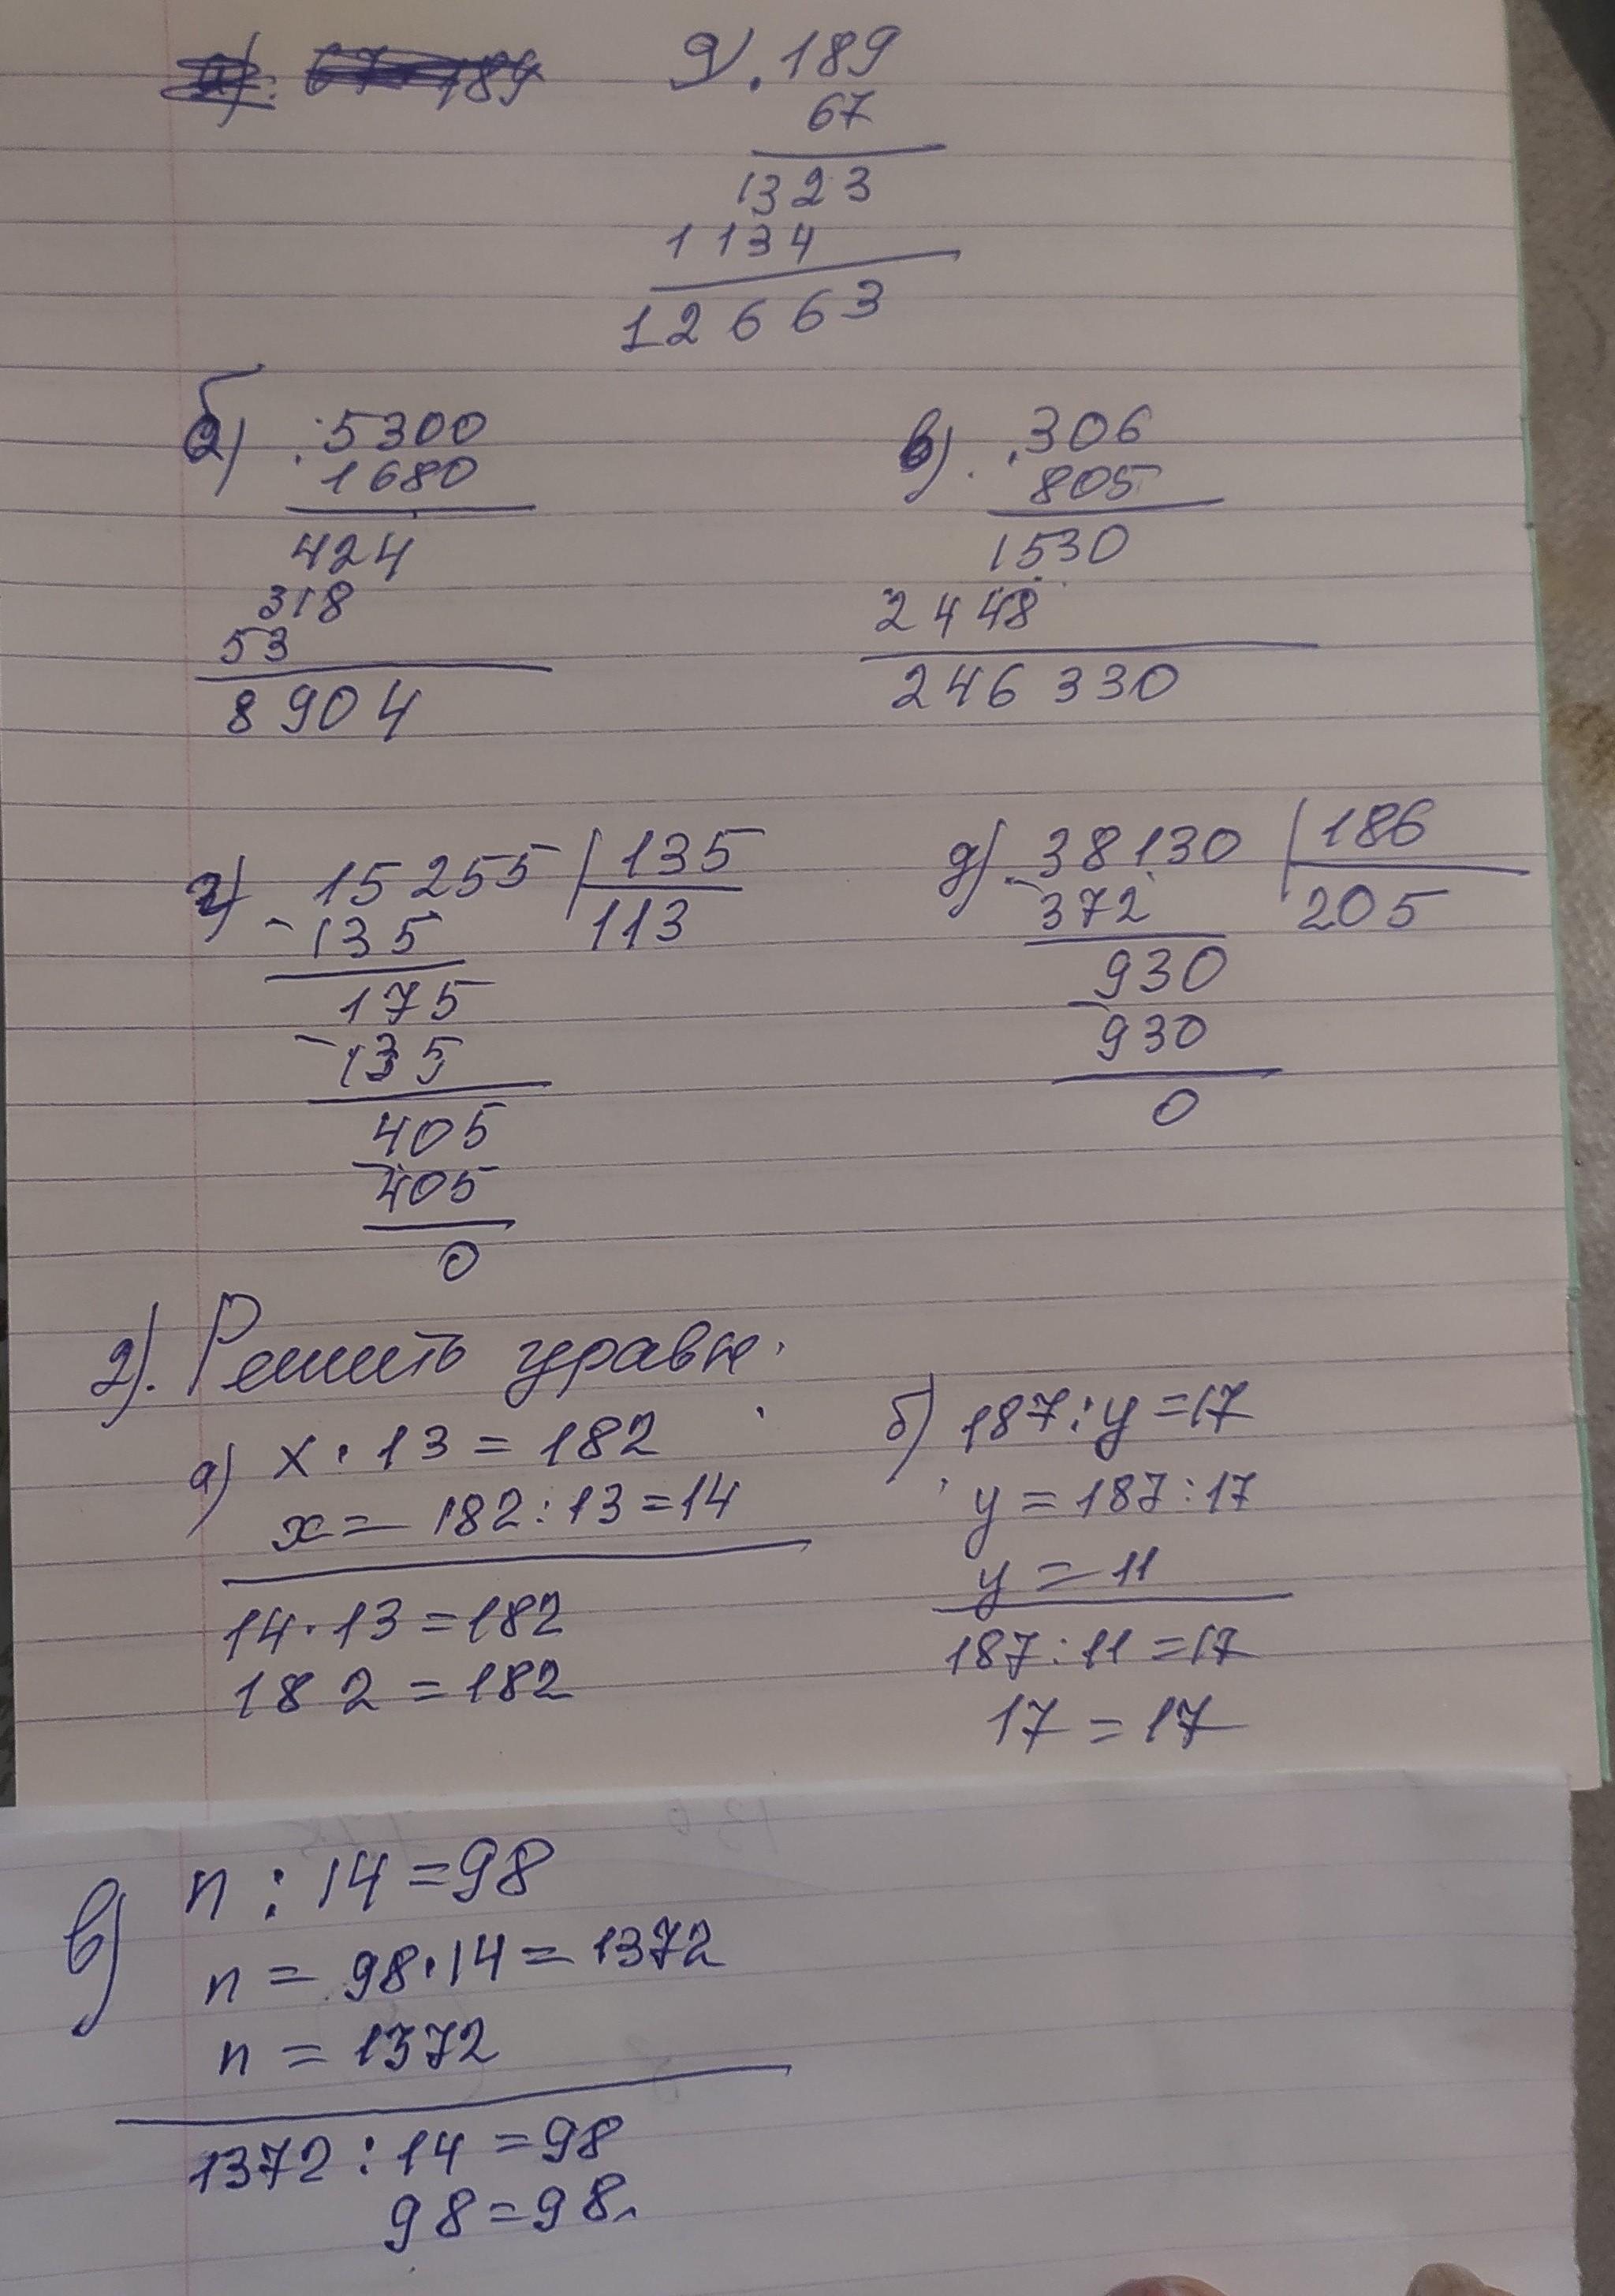 а) 67 · 189
а) · 189
67
1323
1134
12663
б) · 5300
1680
424
318
53
8904
в) · 306
805
1530
2448
246330
г) 15255 | 135
- 135 113
175
- 135
405
- 405
0
д) 38130 | 186
- 372 205
930
- 930
0
2). Решить уравн.
а) x · 13 = 182
x = 182 : 13 = 14
14 · 13 = 182
182 = 182
б) 187 : y = 17
y = 187 : 17
y = 11
187 : 11 = 17
17 = 17
в) n : 14 = 98
n = 98 · 14 = 1372
n = 1372
1372 : 14 = 98
98 = 98.